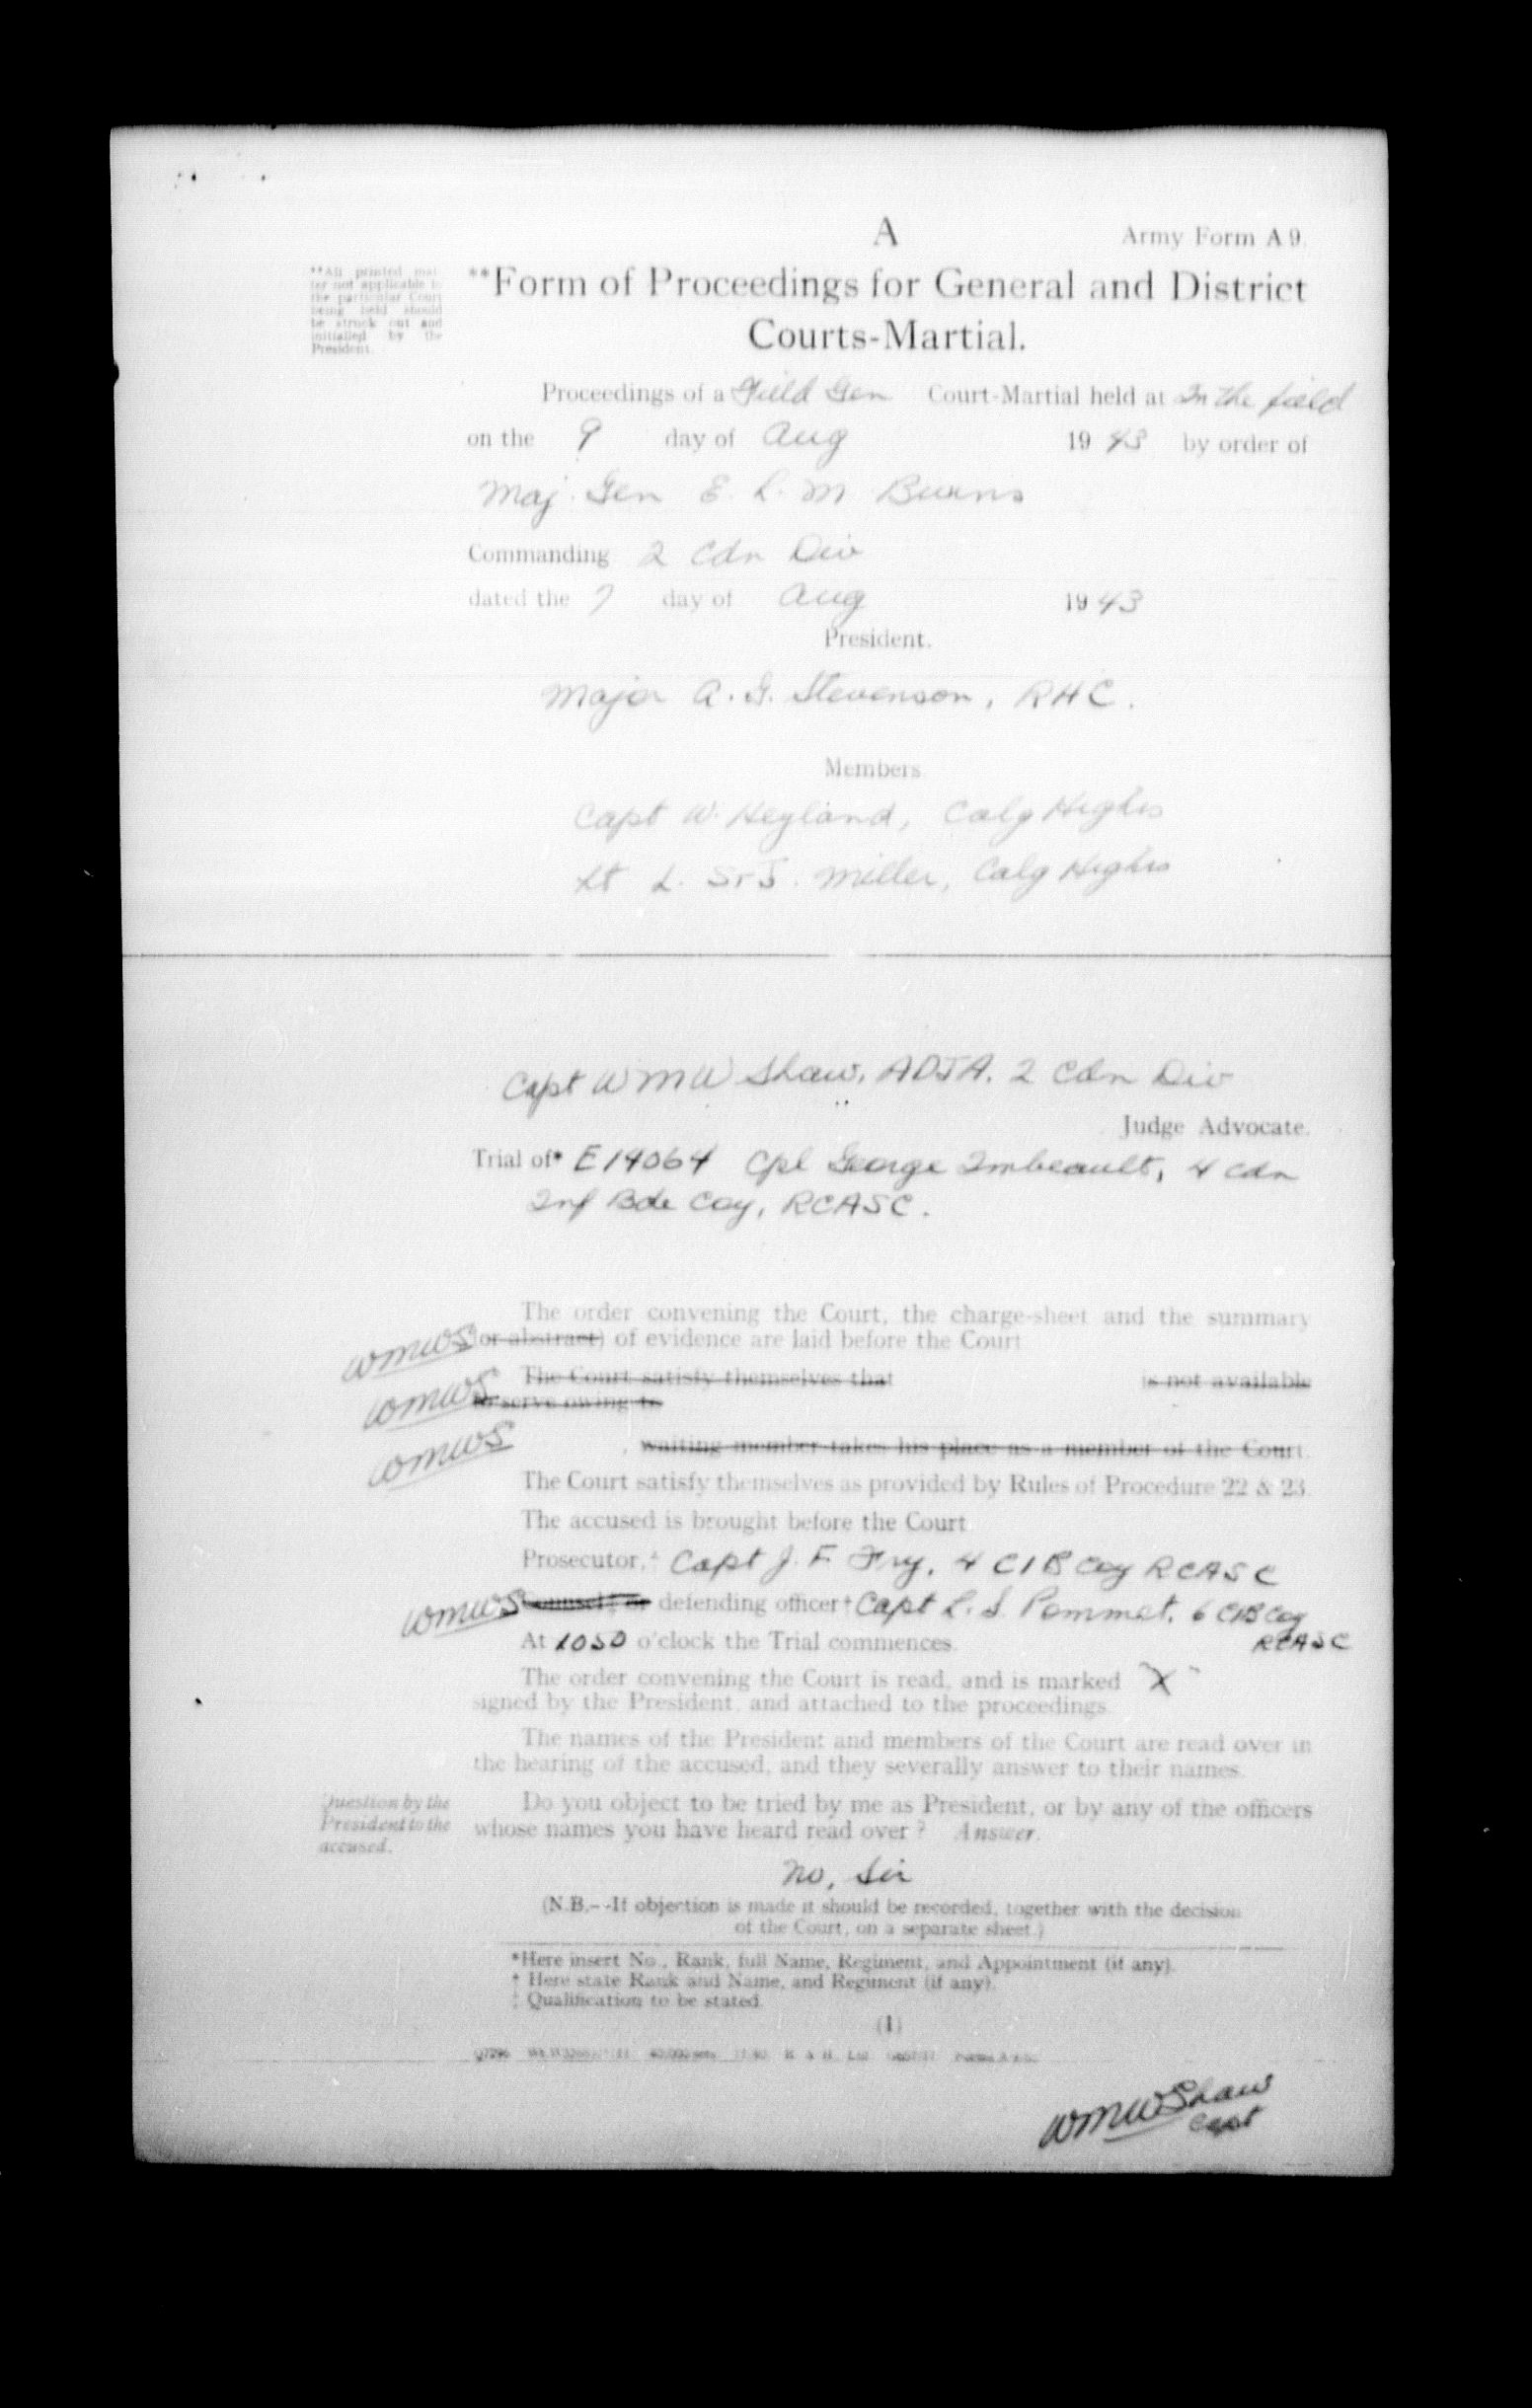 A
Army Form A 9.
**All printed mat-
ter not applicable to
the particular Court
being held should
be struck out and
initialled by the
President.
**Form of Proceedings for General and District
Courts-Martial.
Proceedings of a Field Gen Court-Martial held at In the field
on the 9 day of Aug 1943 by order of
Maj. Gen E. L. M Burns
Commanding 2 Cdn Div
dated the 7 day of Aug 1943
President.
Major A. G. Stevenson, RHC.
Members
Capt W. Heyland, Calg Highrs
Lt L. St J. Miller, Calg Highrs
Capt W M W Shaw, ADJA. 2 Cdn Div
Judge Advocate.
Trial of* E14064 Cpl George Imbeault, 4 Cdn
Inf Bde Coy, RCASC.
The order convening the Court, the charge-sheet and the summary
WMWS (or abstract) of evidence are laid before the Court
WMWS The Court satisfy themselves that is not available
to serve owing to
WMWS , waiting member takes his place as a member of the Court.
The Court satisfy themselves as provided by Rules of Procedure 22 & 23.
The accused is brought before the Court.
Prosecutor,† Capt J. F. Fry, 4 CIB Coy RCASC
WMWS Counsel‡ or defending officer† Capt L. S. Pommet, 6 CIB Coy
RCASC
At 1050 o'clock the Trial commences.
The order convening the Court is read, and is marked "X"
signed by the President, and attached to the proceedings.
The names of the President and members of the Court are read over in
the hearing of the accused, and they severally answer to their names.
Question by the
President to the
accused.
Do you object to be tried by me as President, or by any of the officers
whose names you have heard read over? Answer.
No, Sir
(N.B.--If objection is made it should be recorded, together with the decision
of the Court, on a separate sheet.)
*Here insert No., Rank, full Name, Regiment, and Appointment (if any).
† Here state Rank and Name, and Regiment (if any).
‡ Qualification to be stated.
(1)
WMWShaw
Capt